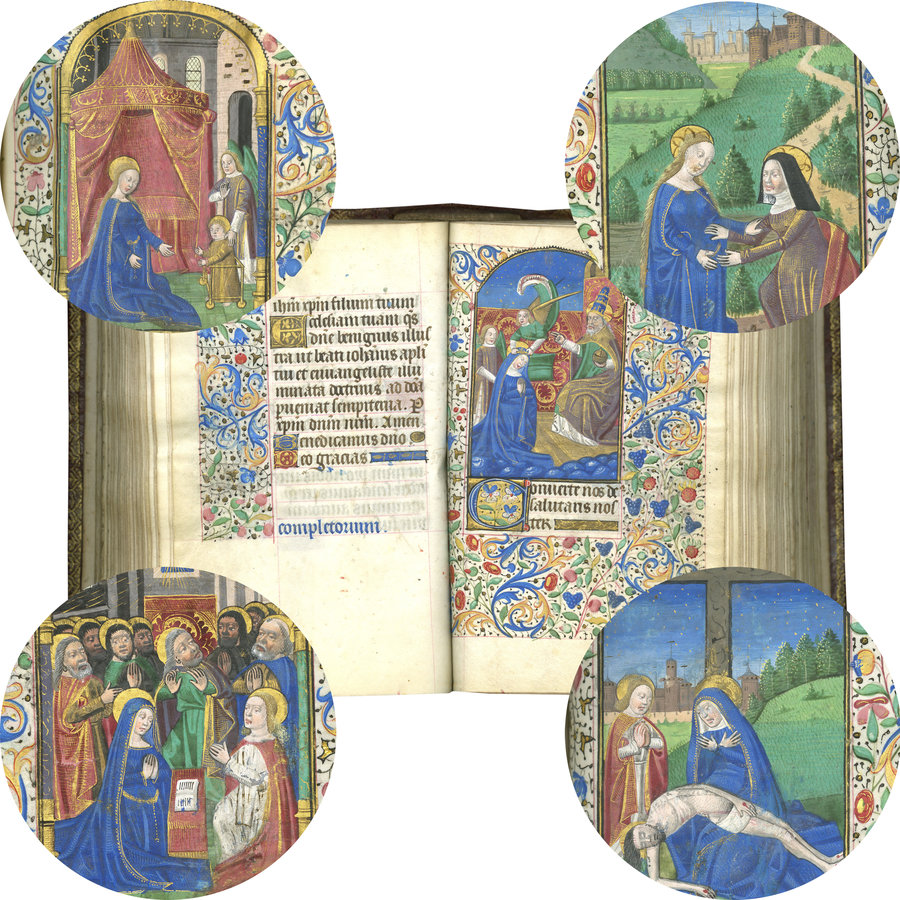 ihm xpm filium tuum
Ecclesiam tuam qs
dne benignus illus
tra ut beati iohanis apli
tui et euuangeliste illu
minata doctrinis ad doa
pueniat sempiterna. P
xpm dnm nrm. Amen
Benedicamus dno
Deo gracias
completorium
Conuerte nos de
salutaris nos
ter